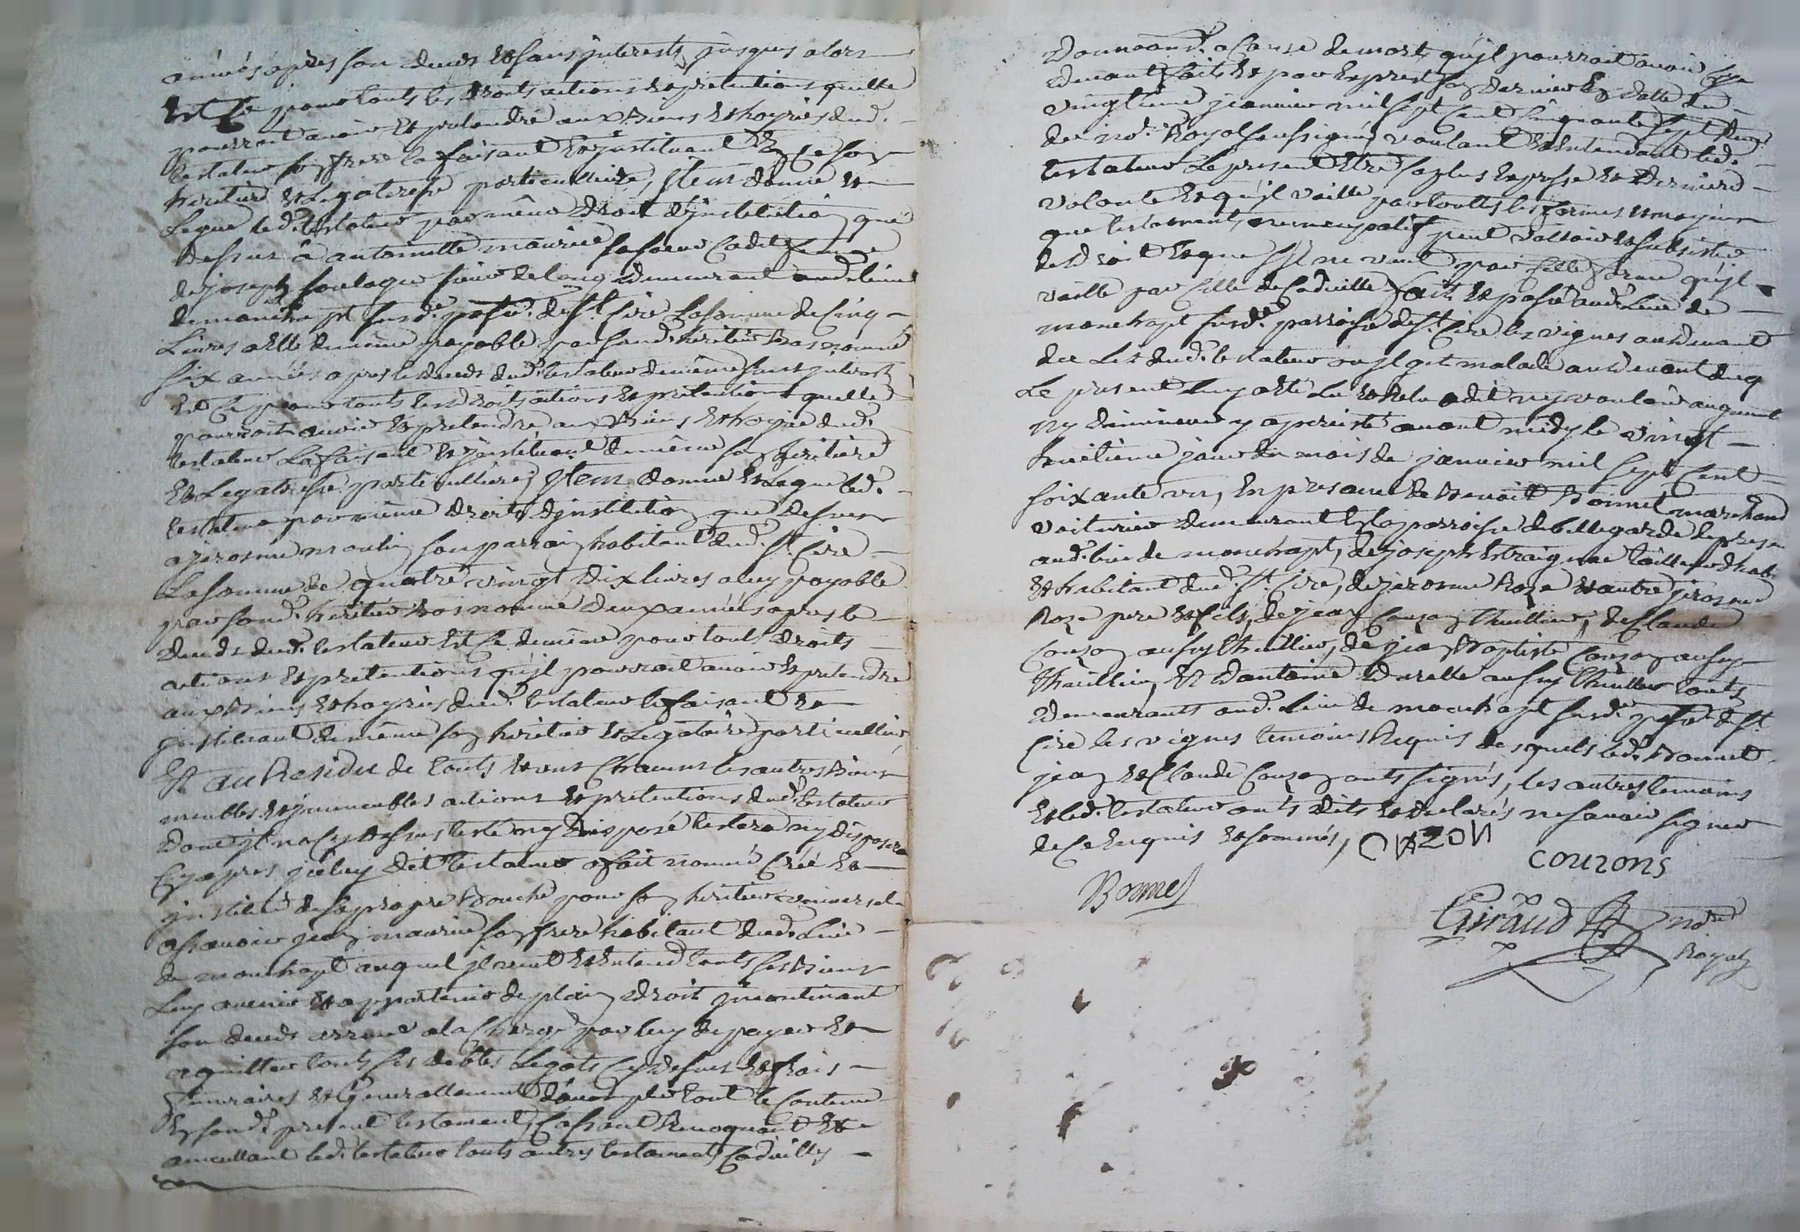 années après son deceds et sans interests jusques alors
Et ce pour touts les droits actions et pretentions quelle
pourroit avoir et pretendre aux biens et hoyries dud.
testateur son frere la faisant et instituant en ce son
heritiere et legateresse particulliere, Item donne et
legue led. testateur par même droit d'institution que
dessus à antoinette maurin sa soeur cadette femme
de joseph soulage demeurant aud. lieu
de monchapt susd. paroisse de St Cire la somme de Cinq
Livres a elle de même payable par sond. heritier bas nommé
six années apres le deceds dud. testateur de même sans interests
Et Ce pour touts les droits actions et pretentions quelle
pourroit avoir et pretendre aux biens et hoyrie dud.
testateur La faisant et instituant de même son heritiere
et Legateresse particulliere; Item donne et Legue led.
testateur par même droits d'institution que dessus
a jerosme moulin son parrain habitant dud. St. Cire
La somme de quatre vingt dix livres a luy payable
par sond. heritier bas nommé deux années apres le
deceds dud. testateur Et Ce de même pour tout droits
actions et pretentions qu'il pourroit avoir et pretendre
aux biens et hoyries dud. testateur le faisant et
instituant de même son heritier et Legatère particullier,
Et au Residu de touts et uns Chacuns les autres biens
meubles et immeubles actions et pretentions dud. testateur
dont il n'a cy dessus testé ny disposé testera ny disposera
Cy apres iceluy dit testateur a fait nommé Créé et
institué de sa propre bouche pour son heritier universel
a sçavoir jean maurin son frere habitant dud. Lieu
de monchapt auquel il veut et entend touts ses biens
Luy avenir et appartenir de plain droit incontinant
son deceds arrivé a la Charge par luy de payer et
aquitter touts ses debtes Legats Cy dessus et frais
funeraires et Generallement d'accomplir tout le Contenu
En sond. present testament, Cassant Revoquant et
annullant led. testateur touts autres testaments Codicilles
Donnaons. a Cause de mort qu'il pourroit avoir Cy
devant faits et par Exprest son dernier En datte du
vingtième janvier mil sept Cent Cinquante sept Reçu
du no.re Royal soussigné, voulant et entendant led.
testateur Le present Etre sa plus Expresse et derniere
volonté et qu'il vaille par touttes les formes et moyens
que testament nuncupatif peut valloir et subsister
de droit et que s'il ne vaut par celle forme qu'il
vaille par Celle de Codicille, fait et passé aud. Lieu de
monchapt susd. parroisse de St. Cire les vignes au devant
du Lit dud. testateur ou il git malade au devant duq
Le present Luy a été Lu et Relu a dit n'y vouloir augmenter
ny diminuer y a persisté avant midy le vingt
huitième jour du mois de janvier mil sept Cent
soixante un, En presence de Benoit Bonnet marchand
voiturier demeurant En la parroisse de bellegarde de present
aud. lieu de monchapt, de joseph Estraigne tailleur d'habits
et habitant dud. St. Cire, de jerosme Roze et autre jerosme
Roze pere et fils, de jean Couzon thuillier, de Claude
Couzon aussy thuillier, de jean Baptiste Couzon aussy
thuillier, Et d'antoine Durette aussy thuillier touts
demeurants aud. Lieu de monchapt susd. parsse. de St.
Cire les vignes temoins Requis desquels led. Bonnet
jean et Claude Couzon onts signés, les autres temoins
et led. testateur onts dits et declarés ne sçavoir signer
de Ce Enquis et sommés,
COUZONS
Bonnet
Giraud no.re
Royal